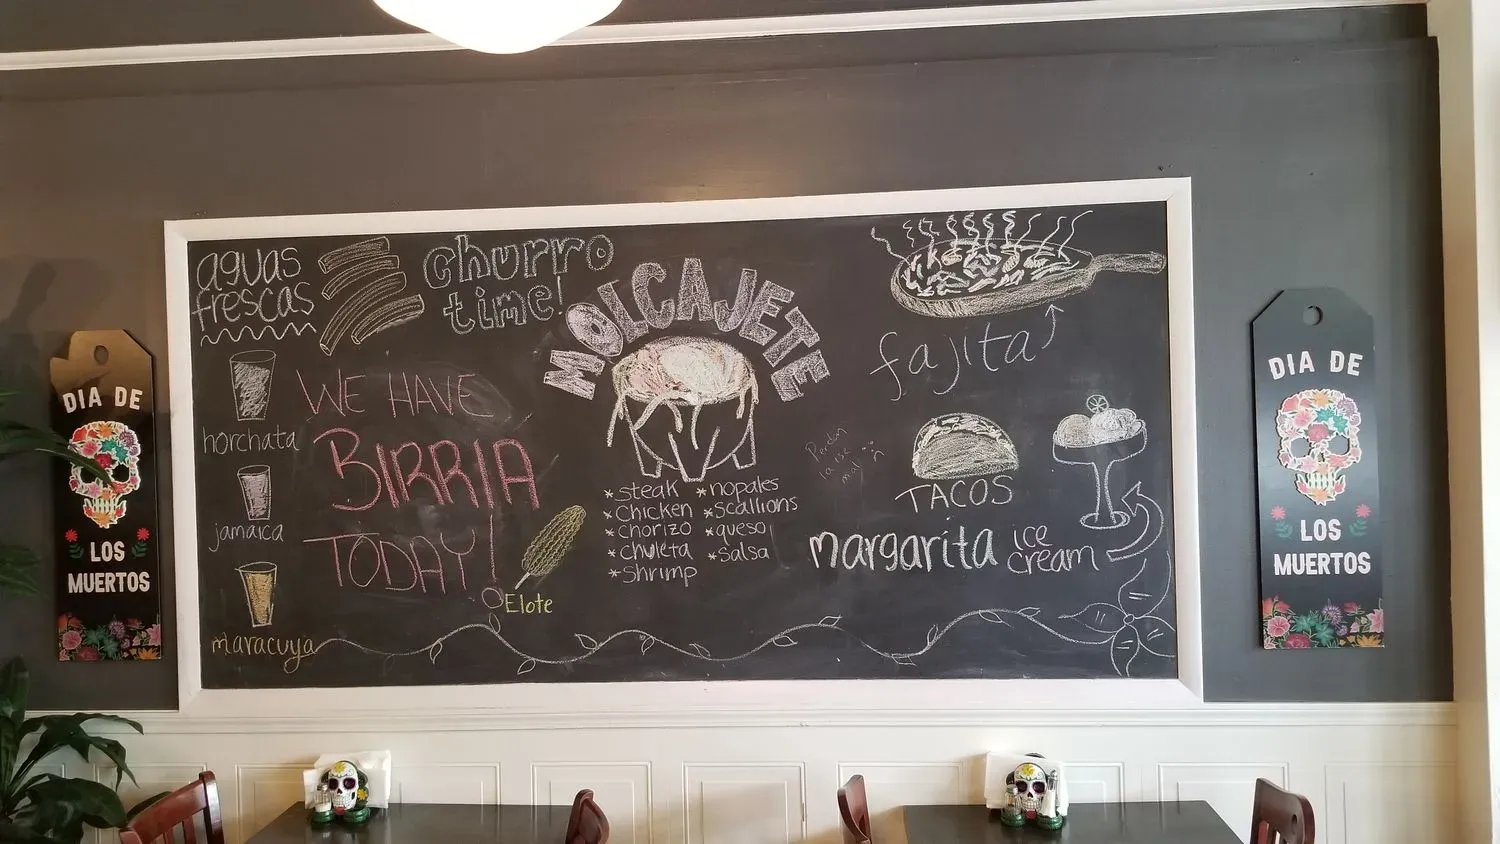 aguas
frescas
horchata
jamaica
maracuya
churro
time!
WE HAVE
BIRRIA
TODAY!
Elote
MOLCAJETE
*steak
*chicken
*chorizo
*chuleta
*shrimp
*nopales
*scallions
*queso
*salsa
fajita
TACOS
margarita ice
cream
DIA DE
LOS
MUERTOS
DIA DE
LOS
MUERTOS